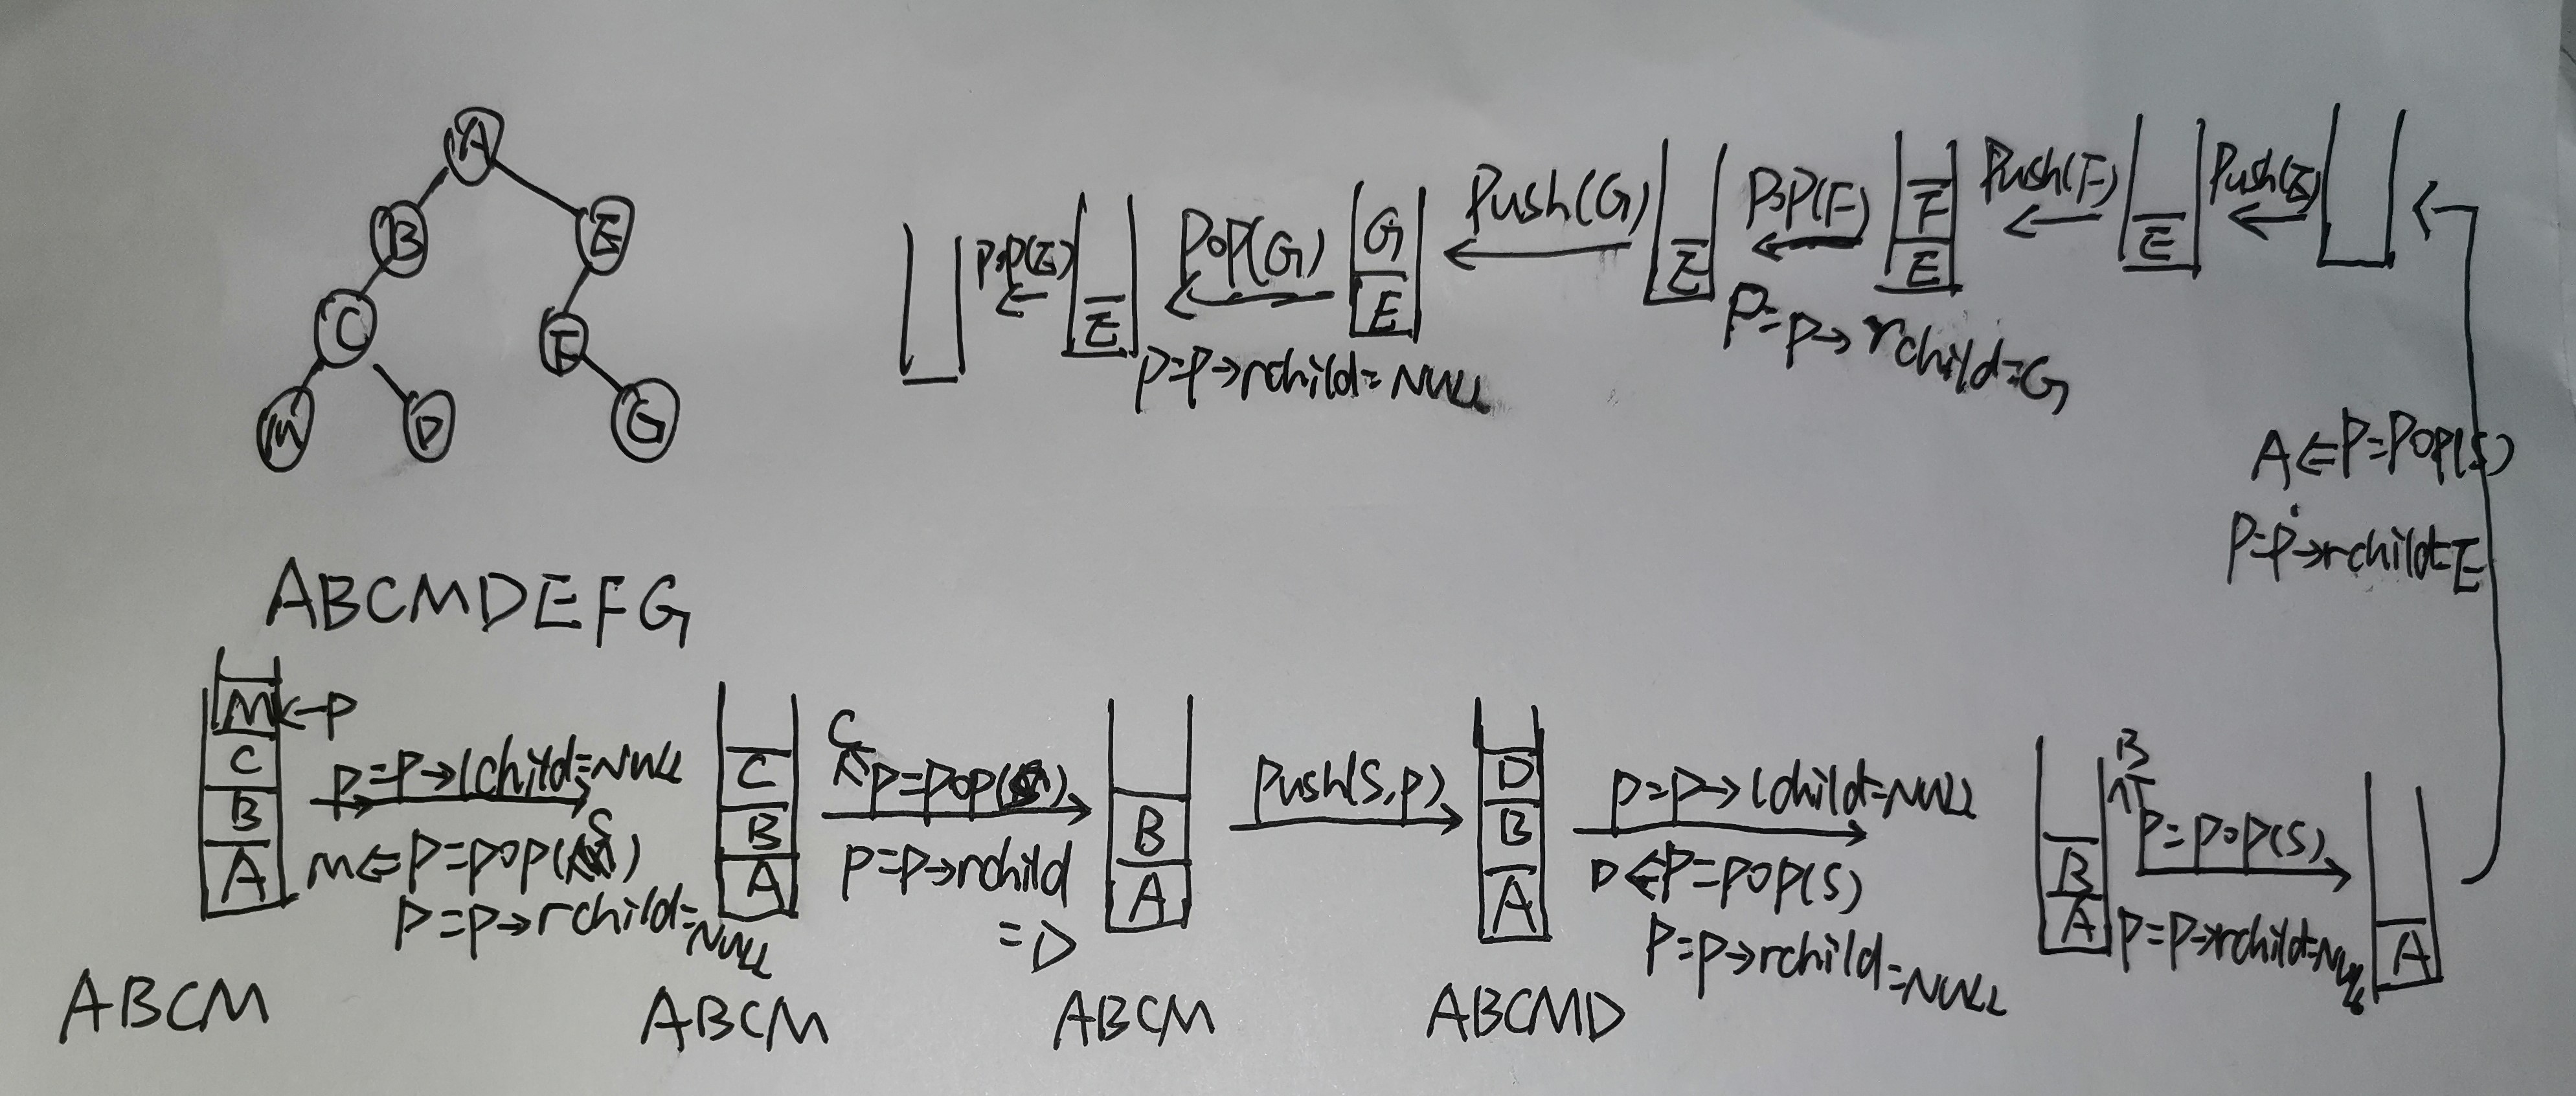 A
B
E
C
F
M
D
G
ABCMDEFG
M ←P
C
B
A
P=P→lchild=NULL
S
M⇐P=pop( )
P=P→rchild=NULL
ABCM
C
B
A
C
P=pop( )
P=P→rchild
=D
ABCM
B
A
Push(S,P)
ABCM
D
B
A
P=P→lchild=NULL
D⇐P=pop(S)
P=P→rchild=NULL
ABCMD
B
A
B
P=pop(S)
P=P→rchild=NULL
A
A⇐P=Pop(S)
P=P→rchild=E
Push(E)
E
Push(F)
F
E
Pop(F)
P=P→rchild=G
E
Push(G)
G
E
Pop(G)
P=P→rchild=NULL
E
Pop(E)